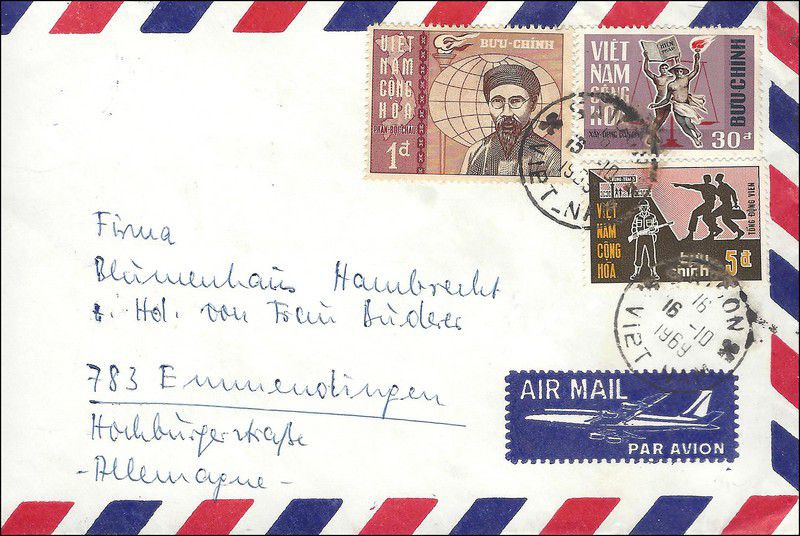 VIỆT
NAM
CỘNG
HÒA
BƯU-CHÍNH
PHAN-BỘI-CHÂU
1đ
VIỆT
NAM
CỘNG
HÒA
BƯU CHÍNH
HIẾN
30đ
VIỆT
NAM
CỘNG
HÒA
TỔNG ĐỘNG VIÊN
BƯU
CHÍNH
5đ
10
1969
VIET-NAM
16
16 -10
1969
VIET
Firma
Blumenhaus Hambrecht
z. Hd. von Frau Buderer
783 Emmendingen
Hochburgerstraße
- Allemagne -
AIR MAIL
PAR AVION